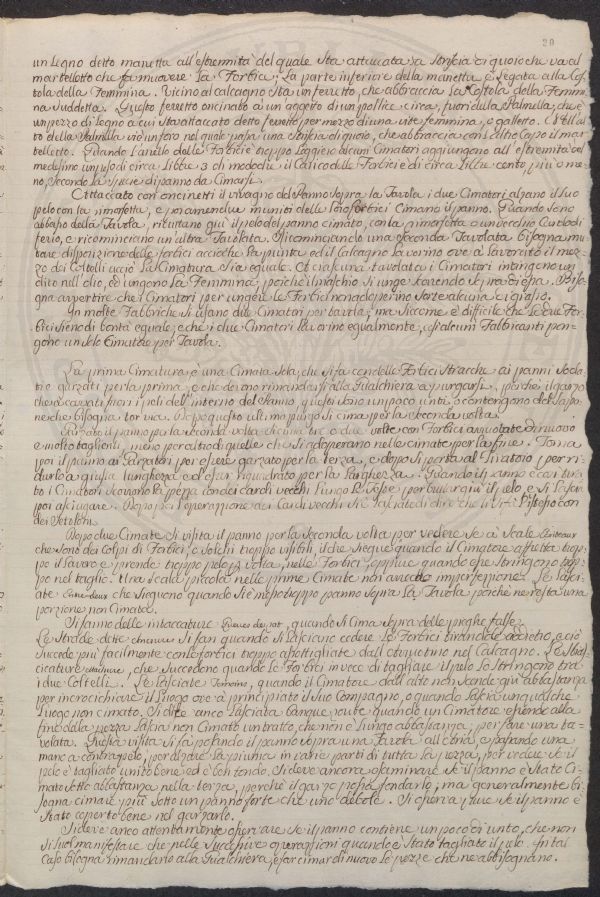 20
un legno detto manetta all'estremità del quale sta attaccata la striscia di quoio che va al
martelletto che fa muovere la Forbice; La parte inferiore della manetta è legata alla Co-
stola della Femmina. Vicino al calcagno sta un ferretto, che abbraccia la Costola della Femmi-
na suddetta. Questo ferretto oncinato à un oggetto di un pollice circa, fuori dalla Palmella, che è
un pezzo di legno a cui sta attaccato detto ferretto per mezzo di una vite femmina, e galletto. Nell'al-
to della Palmella vi è un foro nel quale passa una striscia di quoio, che abbraccia con l'altro Capo il mar-
telletto. Quando l'anello delle Forbici è troppo leggiero alcuni Cimatori aggiungono all'estremità del
medesimo un peso di circa Libbre 3 di modo che il Carico delle Forbici è di circa Libbre cento, più o me-
no, secondo la specie di panno da Cimarsi.
Attaccato con oncinetti il vivagno del Panno sopra la Tavola i due Cimatori alzano il suo
pelo con la rimossetta, e poi amendue muniti delle loro Forbici Cimano il panno. Quando sono
abbasso della Tavola, rituffano qui il pelo del panno cimato, con la rimossetta o un vecchio Cortello di
ferro, e ricominciano un'altra Tavolata. Ricominciando una seconda Tavolata bisogna mu-
tare disposizione delle forbici acciochè la punta ed il Calcagno lavorino ove à lavorato il mez-
zo dei Coltelli acciò la Cimatura sia eguale. Ad ciascuna tavolata i Cimatori intingono un
dito nell'olio, ed ungono la Femmina; poichè il maschio si unge stando sopra di essa. Biso-
gna avvertire che i Cimatori per ungere le Forbici non adoperino sorte alcuna di grasso.
In molte Fabbriche si usano due Cimatori per tavola; ma siccome è difficile che le due For-
bici sieno di bontà eguale, e che i due Cimatori lavorino egualmente, così alcuni Fabbricanti pon-
gono un solo Cimatore per Tavola.
La prima Cimatura è una Cimata sola, che si fa con delle Forbici stracche ai panni soda-
ti e garzati per la prima, e che devono rimandarsi alla Gualchiera a purgarsi, perchè il garzo
che à cavato fuori i peli dell'interno del Panno, questi sono un poco unti, e contengono del sapo-
ne che bisogna tor via. Dopo questo ultimo purgo si cima per la seconda volta.
Garzato il panno per la seconda volta si cima tre o due volte con Forbici arruotate di nuovo
e molto taglienti, meno però altro di quelle che si adoperano nelle cimate per la fine. Torna
poi il panno ai Garzatori per essere garzato per la terza, e dopo si porta al Tiratoio per ri-
durlo a giusta lunghezza ed esser riquadrato per la larghezza. Quando il panno è ca
ti i Cimatori scorrono la pezza con dei cardi vecchi lungo le Tese per buttar giù il pelo e si lascia
poi asciugare. Dopo
dei Setoloni.
Dopo due Cimate si visita il panno per la seconda volta per vedere se à Scale
che sono dei Colpi di Forbici, o solchi troppo visibili, il che siegue quando il Cimatore affretta trop-
po il lavoro e prende troppo pelo p volta, nelle Forbici, oppure quando esse stringono trop-
po nel taglio. Una Scala piccola nelle prime Cimate non arreca imperfezione. Le lasci-
ate Entre-deux che sieguono quando si è messo troppo panno sopra la Tavola poichè ne resta una
porzione non Cimata.
Si fanno delle intaccature quando si Cima sopra delle pieghe false.
Le Strade dette si fan quando si lasciano cedere le Forbici tirandole addietro, e ciò
succede più facilmente con le forbici troppo assottigliate dall'arruotino nel Calcagno. Le
cicature , che succedono quando le Forbici in vece di tagliare il pelo lo stringono tra
i due Coltelli. Le lasciate , quando il Cimatore dall'alto non scende giù abbastanza
per incrocichiare il luogo ove à principiato il suo Compagno, o quando lascia un qualche
luogo non cimato. Si dice anco lasciata banque-route quando un Cimatore essendo alla
fine della pezza lascia non Cimato un tratto che non è lungo abbastanza, per fare una ta-
volata. Questa visita si fà posando il panno sopra una Tavola all'aria, e passando una
mano a contrappelo, per alzare la piuma in varie parti di tutta la pezza, per vedere se il
pelo è tagliato unito bene ed è ben tondo. Si deve ancora esaminare se il panno è stato Ci-
mato sotto abbastanza nella terza, perchè il garzo possa fondarlo, ma generalmente bi-
sogna cimare più sotto un panno forte che uno debole. Si osserva pure se il panno è
stato coperto bene nel garzarlo.
Si deve anco attentamente osservare se il panno contiene un poco di unto, che non
si suol manifestare che nelle successive operazioni quando è stato tagliato il pelo. In tal
Caso bisogna rimandarlo alla Gualchiera, e far cimar di nuovo le pezze che ne abbisognano.